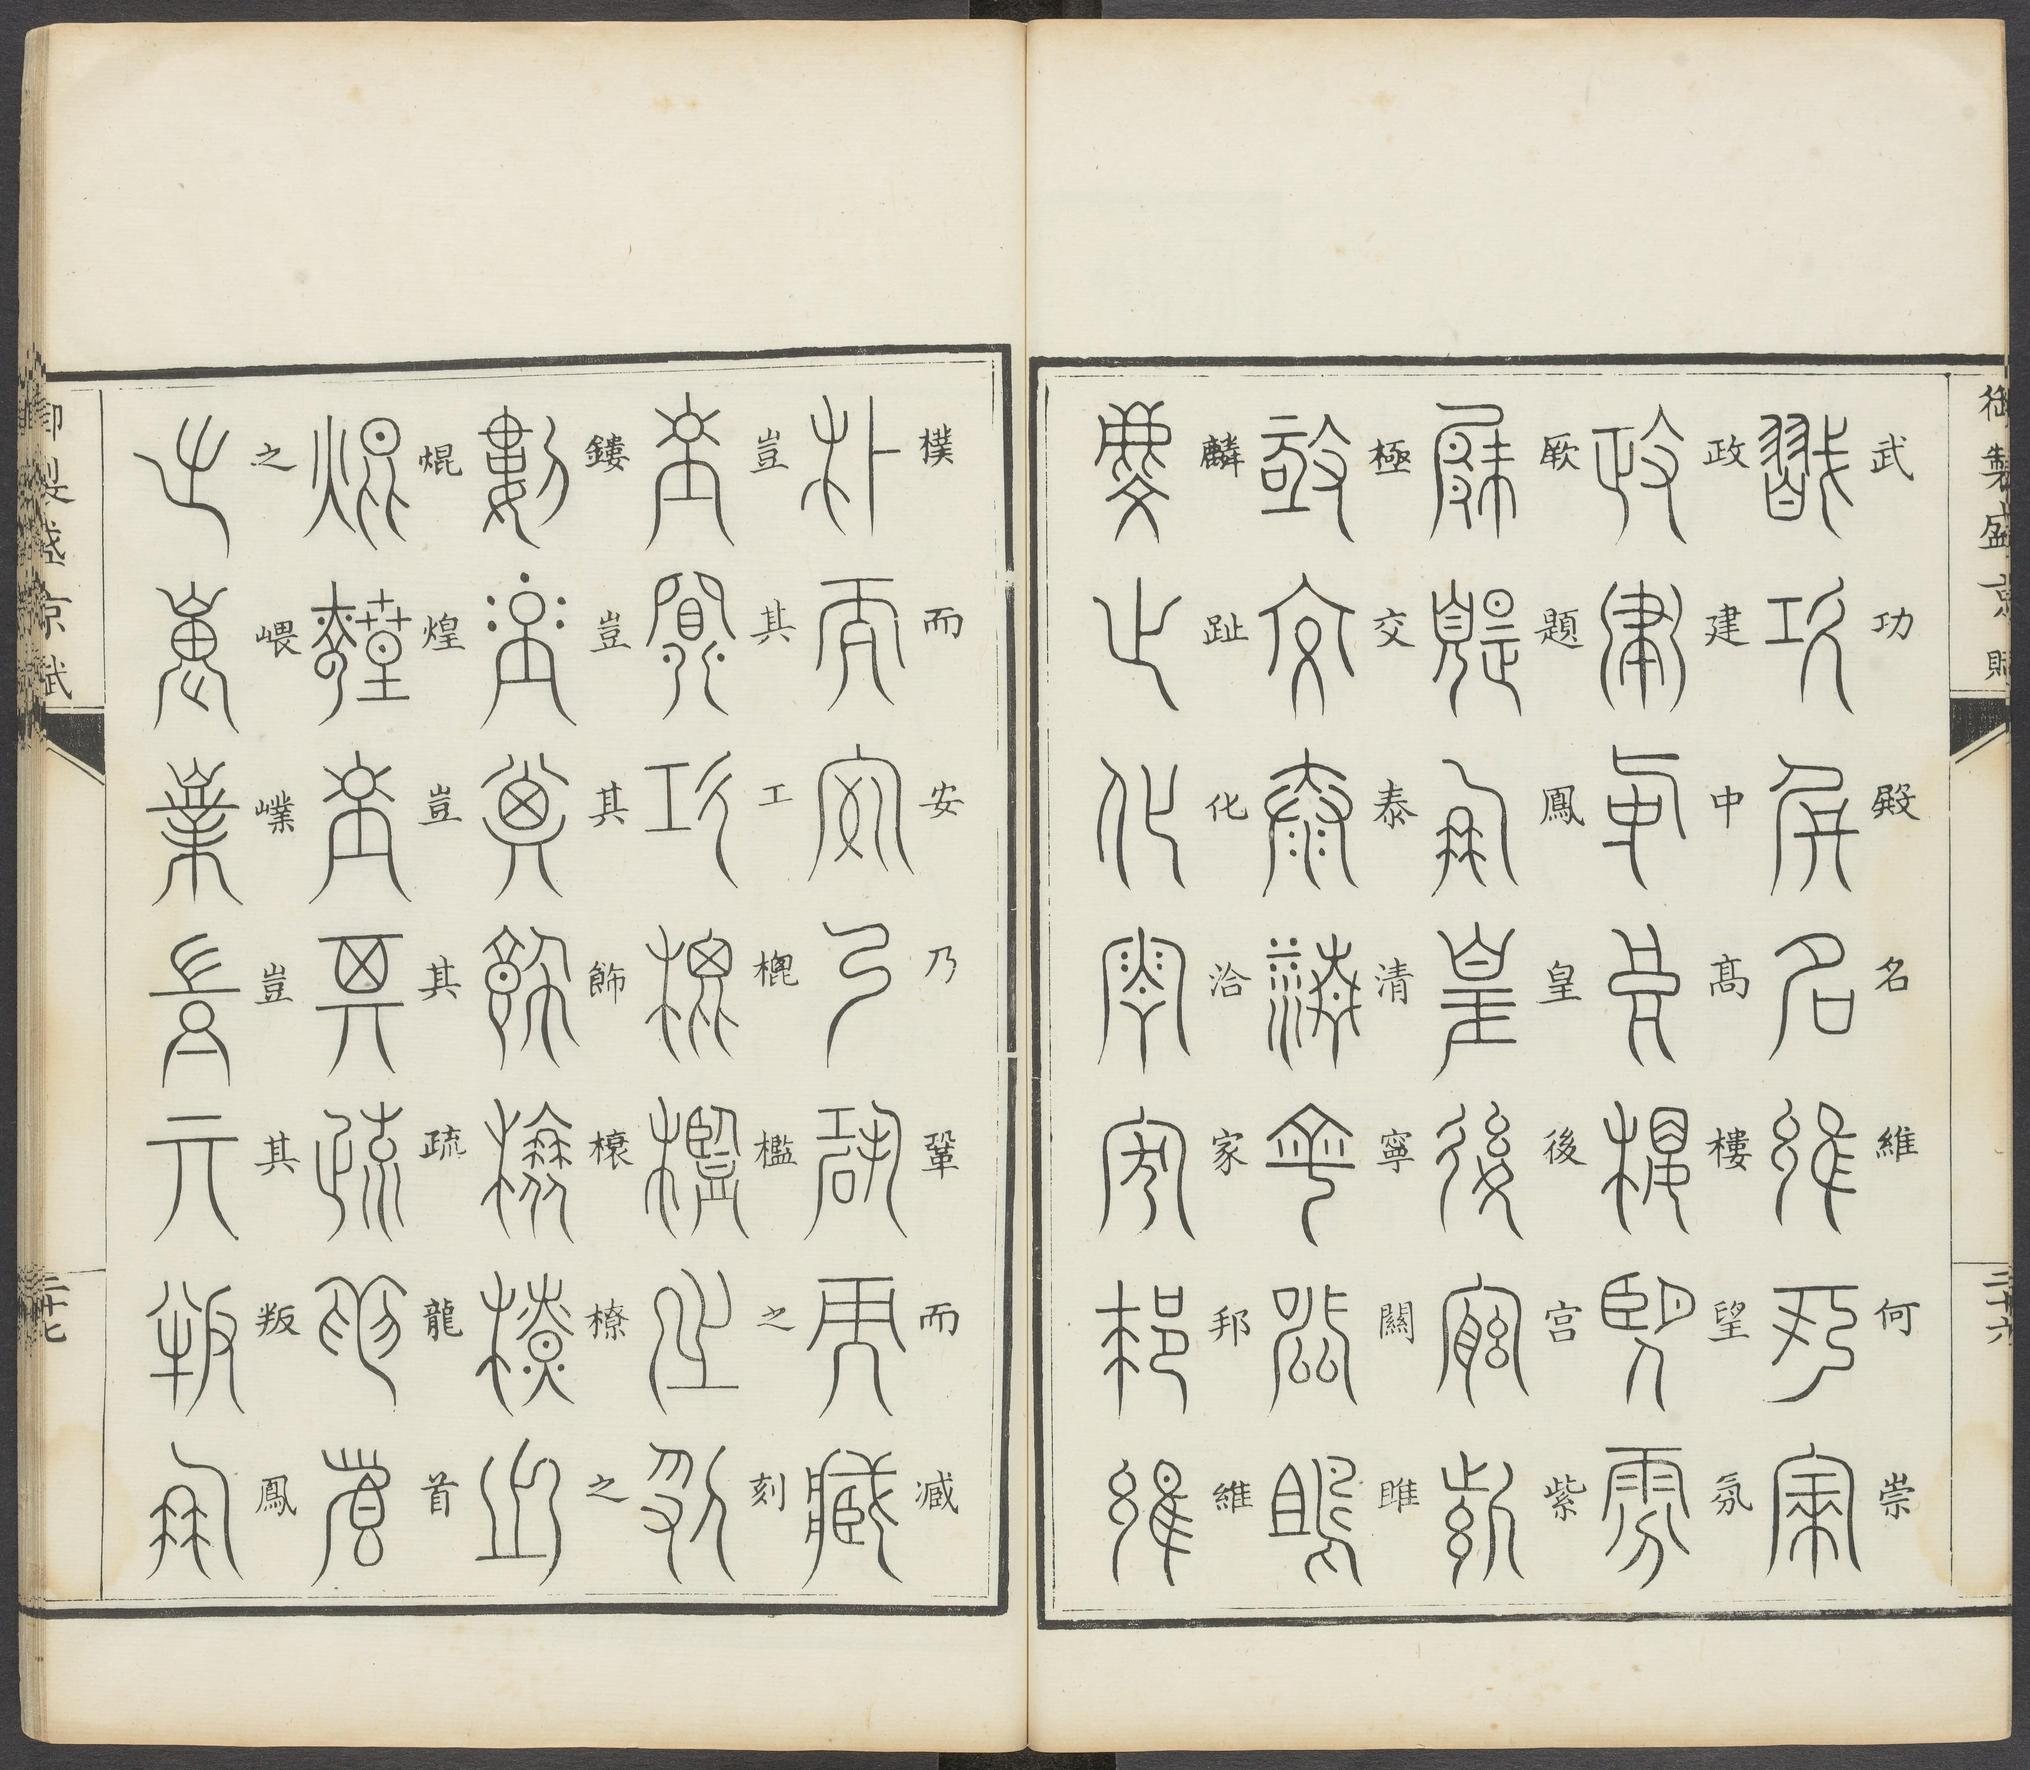 御製盛京賦
二十六
武功殿名維何崇
政建中高樓望氛
厥題鳳皇後宮紫
極交泰清寧關雎
麟趾化洽家邦維
樸而安乃鞏而臧
豈其工槐檻之刻
鏤豈其飾榱橑之
焜煌豈其疏龍首
之嵔嶫豈其叛鳳
御製盛京賦
二十七